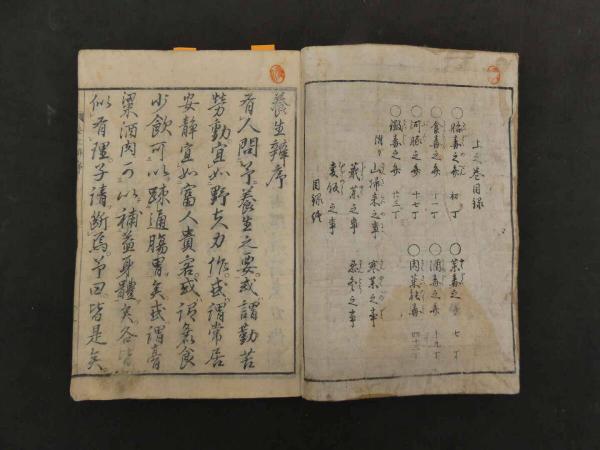 上之巻目録
○胎毒之弁 初丁 ○薬毒之弁 七丁
○食毒之弁 十一丁 ○酒毒之弁 十九丁
○河豚之弁 十七丁 ○肉菜能毒 四十三丁
○黴毒之弁 廿三丁
附リ 山帰来之事 寒薬之事
之事 忍冬之事
麦飯之事
目録終
養生辨序
有人問予養生之要或謂勤苦
勞動宜如野夫力作或謂常居
安静宜如富人貴客或謂食
少飲可以疎通腸胃矣或謂膏
粱酒肉可以補益身體矣各皆
似有理子請断焉予曰皆是矣